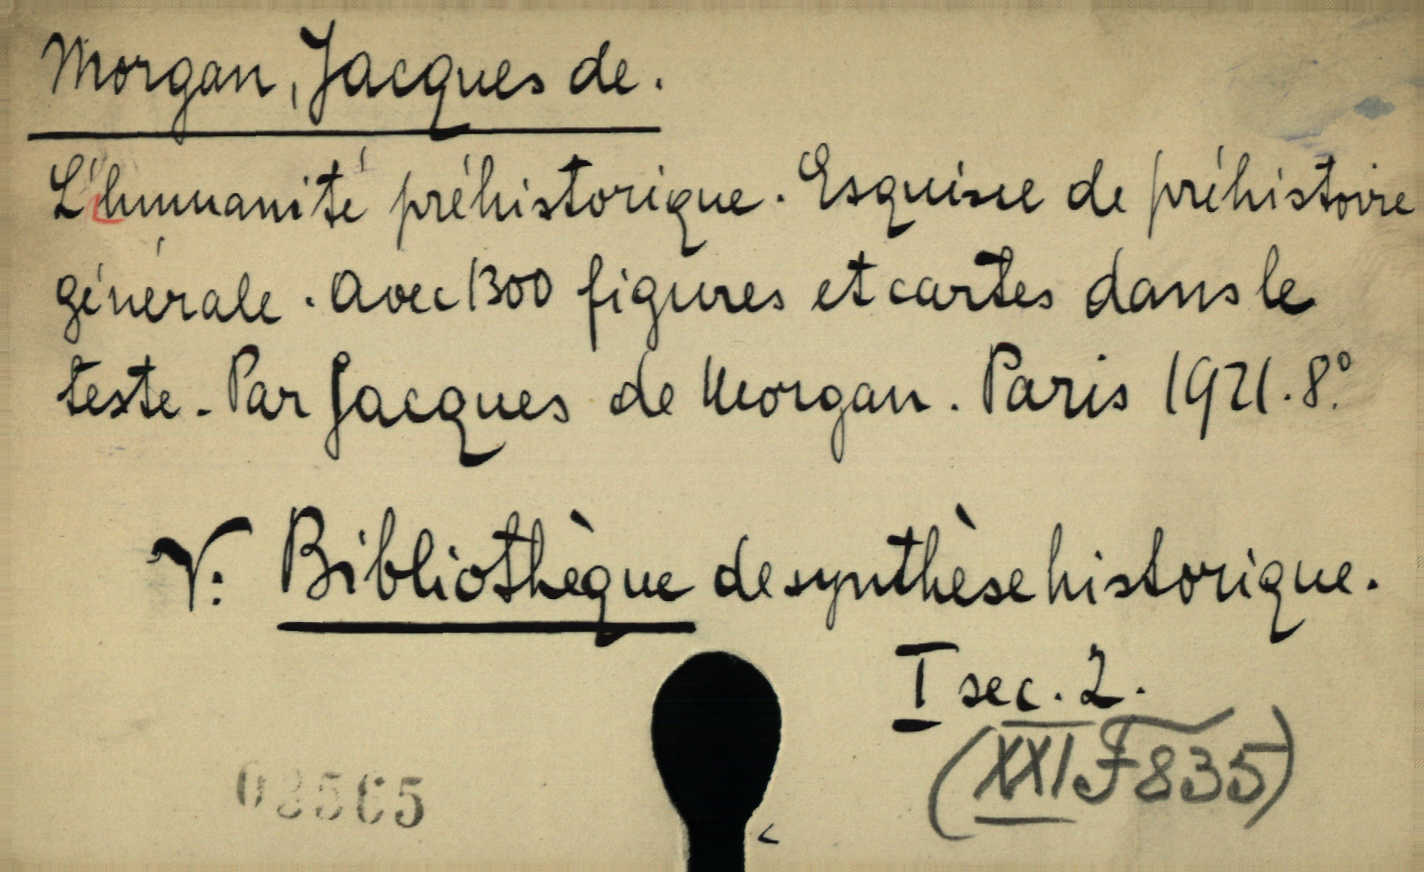 Morgan, Jacques de.
L'humanité préhistorique. Esquisse de préhistoire
générale. Avec 1300 figures et cartes dans le
texte. Par Jacques de Morgan. Paris 1921. 8°.
V: Bibliothèque de synthèse historique.
I sec. 2.
(XXI F 835)
02565